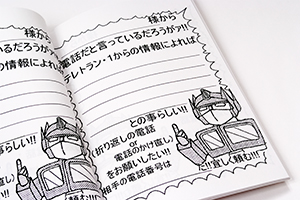 様から
いるだろうがァ!!
の情報によれば
かけ直し)
直し)
頼む!!!
様から
電話だと言っているだろうがァ!!
テレトラン・1からの情報によれば
との事らしい!!
(折り返しの電話
or
電話のかけ直し)
をお願いしたい!!
相手の電話番号は
だ!!宜しく頼む!!!